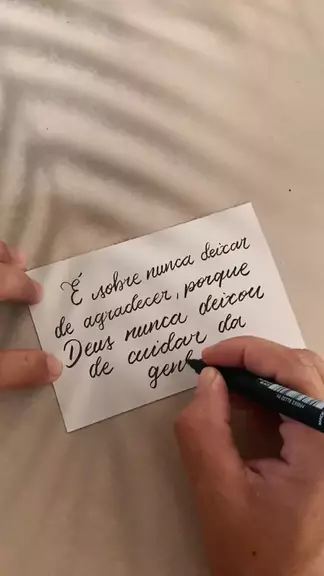 É sobre nunca deixar
de agradecer, porque
Deus nunca deixou
de cuidar da
gent